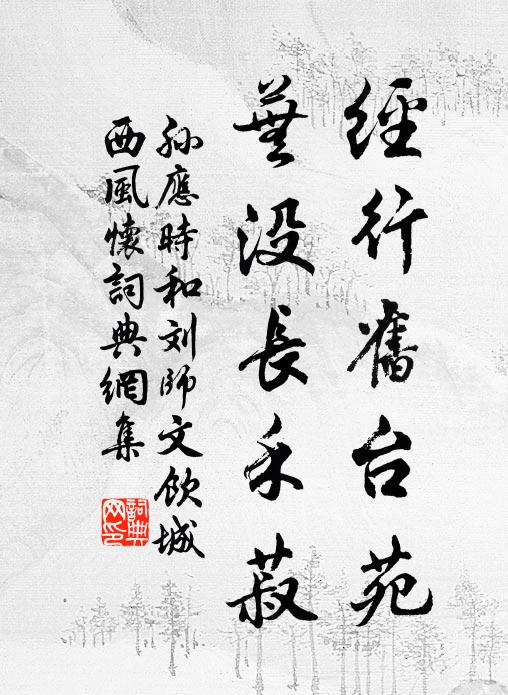 經行舊台苑
蕪没長禾菽
孙應時和刘師文飲城
西風懷詞典網集
詞典网印